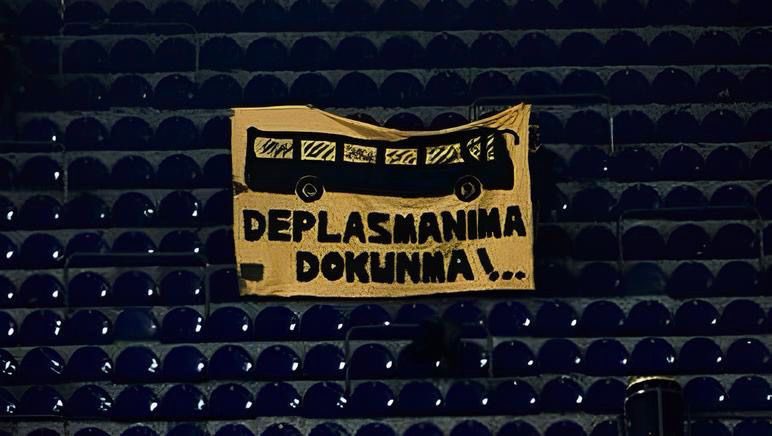 DEPLASMANIMA
DOKUNMA!...